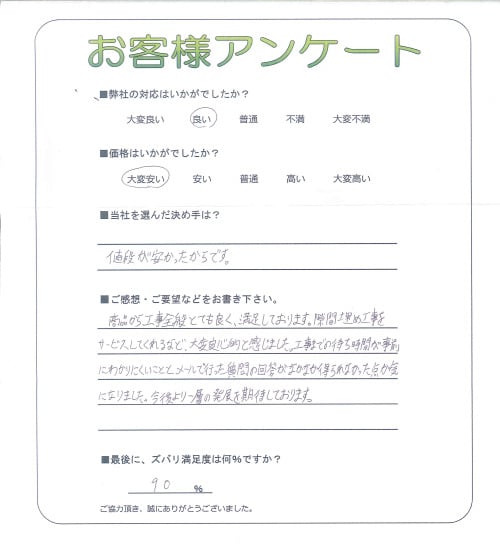 お客様アンケート
■弊社の対応はいかがでしたか？
大変良い 良い 普通 不満 大変不満
■価格はいかがでしたか？
大変安い 安い 普通 高い 大変高い
■当社を選んだ決め手は？
値段が安かったからです。
■ご感想・ご要望などをお書き下さい。
商品から工事全般とても良く、満足しております。隙間埋め工事を
サービスしてくれるなど、大変良心的と感じました。工事までの待ち時間が事前
にわかりにくいことと、メールで行った質問の回答がなかなか得られなかった点が気
になりました。今後より一層の発展を期待しております。
■最後に、ズバリ満足度は何％ですか？
90 %
ご協力頂き、誠にありがとうございました。